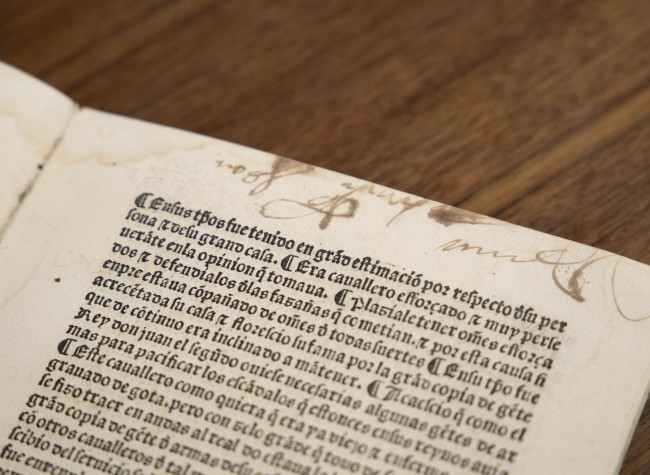 ¶Ensus tp̄os fue tenido en grād estimaciō por respecto ðsu per
sona ⁊ desu grand casa. ¶Era cauallero efforçado ⁊ muy perse
uerāte enla opinion q̄ tomaua. ¶Plazíale tener om̄es esforça
dos ⁊ defendialos ðlas fazañas q̄ cometian. ⁊ por esta causa si
enpre estaua cōpañado de om̄es ð todas suertes ¶Ensu tp̄o fue
acrecētada su casa ⁊ florescio su fama por la grād copia de gēte
que de cōtinuo era inclinado a mātener. ¶Acaescio q̄ como el
Rey don juan el segūdo ouiese necesarias algunas gētes de ar
mas para pacificar los escādalos q̄ estonces ensus reynos auia
¶Este cauallero como quiera q̄ era ya viejo ⁊ enfermo
grauado de gota. pero con zelo grāde q̄ touo de
se fizo traer en andas al real do estaua
grād copia de gēte ð armas desu
cō otros caualleros ð tal
scibio del seruicio
fue